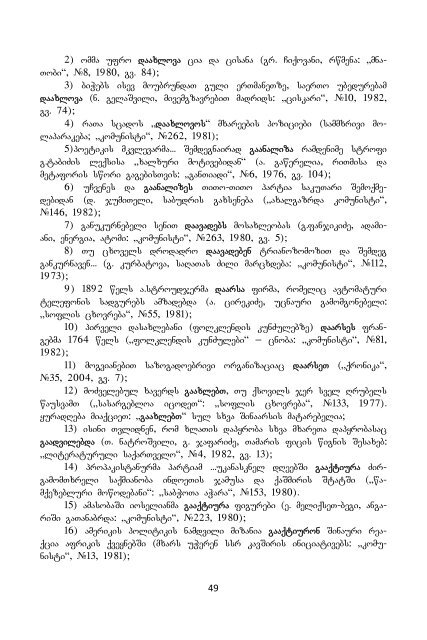 2) ომმა უფრო დააახლოვა ცია და ცისანა (გრ. ჩიქოვანი, რწმენა: „მნა-
თობი“, №8, 1980, გვ. 84);
3) ბიჭებს ისევ მოუბრუნდათ გული ერთმანეთზე, საერთო უბედურებამ
დააახლოვა (ნ. გელაშვილი, მივემგზავრებით მადრიდს: „ცისკარი“, №10, 1982,
გვ. 74);
4) რათა სცადოს „დააახლოვოს“ მხარეების პოზიციები (სამმხრივი მო-
ლაპარაკება; „კომუნისტი“, №262, 1981);
5)პოეტიკის მკვლევარმა... შემდეგნაირად გააანალიზა რამდენიმე სტროფი
გ.ტაბიძის ლექსისა „ხალხური მოტივებიდან“ (ა. გაწერელია, რითმისა და
მეტაფორის სწორი გაგებისთვის: „განთიადი“, №6, 1976, გვ. 104);
6) უჩვენეს და გააანალიზეს თითო-თითო პარტია საკუთარი შემოქმე-
დებიდან (დ. ჯუმითელი, საბუდრის გახსენება („ახალგაზრდა კომუნისტი“,
№146, 1982);
7) განუკურნებელი სენით დააავადებს მოსახლეობას (გ.ფანჯიკიძე, ადამი-
ანი, ენერგია, ატომი: „კომუნისტი“, №263, 1980, გვ. 5);
8) თუ ცხოველს დროდადრო დააავადებენ ტრიანოზომოზით და შემდეგ
განკურნავენ... (გ. კურბატოვა, საღათას ძილი მარცხდება: „კომუნისტი“, №112,
1973);
9) 1892 წელს ა.სტროუჯერმა დააარსა ფირმა, რომელიც ავტომატური
ტელეფონის სადგურებს ამზადებდა (ა. ცირეკიძე, უცნაური გამომგონებელი:
„სოფლის ცხოვრება“, №55, 1981);
10) პირველი დასახლებანი (ფოლკლენდის კუნძულებზე) დააარსეს ფრან-
გებმა 1764 წელს („ფოლკლენდის კუნძულები“ – ცნობა: „კომუნისტი“, №81,
1982);
11) მოგვიანებით საზოგადოებრივი ორგანიზაციაც დააარსეთ („ქრონიკა“,
№35, 2004, გვ. 7);
12) მოძველებულ ხავერდს გააახლებთ, თუ ქსოვილს ჯერ სველ ღრუბელს
წაუსვამთ („სასარგებლოა იცოდეთ“: „სოფლის ცხოვრება“, №133, 1977).
ყურადღება მიაქციეთ: „გააახლებთ“ სულ სხვა შინაარსის მატარებელია;
13) ისინი თვლიდნენ, რომ ზღათის დაპყრობა სხვა მხარეთა დაპყრობასაც
გააადვილებდა (თ. ნატროშვილი, გ. ჯაფარიძე, თამარის ფიცის წიგნის შესახებ:
„ლიტერატურული საქართველო“, №4, 1982, გვ. 13);
14) პროპაკისტანურმა პარტიამ ...უკანასკნელ დღეებში გაააქტიურა ძირ-
გამომთხრელი საქმიანობა ინდოეთის ჯამუსა და ქაშმირის შტატში („წა-
მქეზებლური მოწოდებანი“: „საბჭოთა აჭარა“, №153, 1980).
15) ამასობაში იოსელიანმა გააქტიურა ფიგურები (ე. მელიქსეთ-ბეგი, ანგა-
რიში გათანაბრდა: „კომუნისტი“, №223, 1980);
16) ამერიკის პოლიტიკის ნამდვილი მიზანია გააქტიურონ შინაური რეა-
ქცია აფრიკის ქვეყნებში (მხარს უჭერენ სსრ კავშირის ინიციატივებს: „კომუ-
ნისტი“, №13, 1981);
49